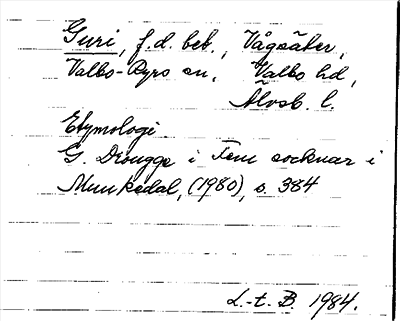 Guri, f.d. beb., Vågsäter,
Valbo-Ryrs sn, Valbo hd,
Älvsb. l.
Etymologi
G. Drougge i Fem socknar i
Munkedal, (1980), s. 384
L.-t. B. 1984.